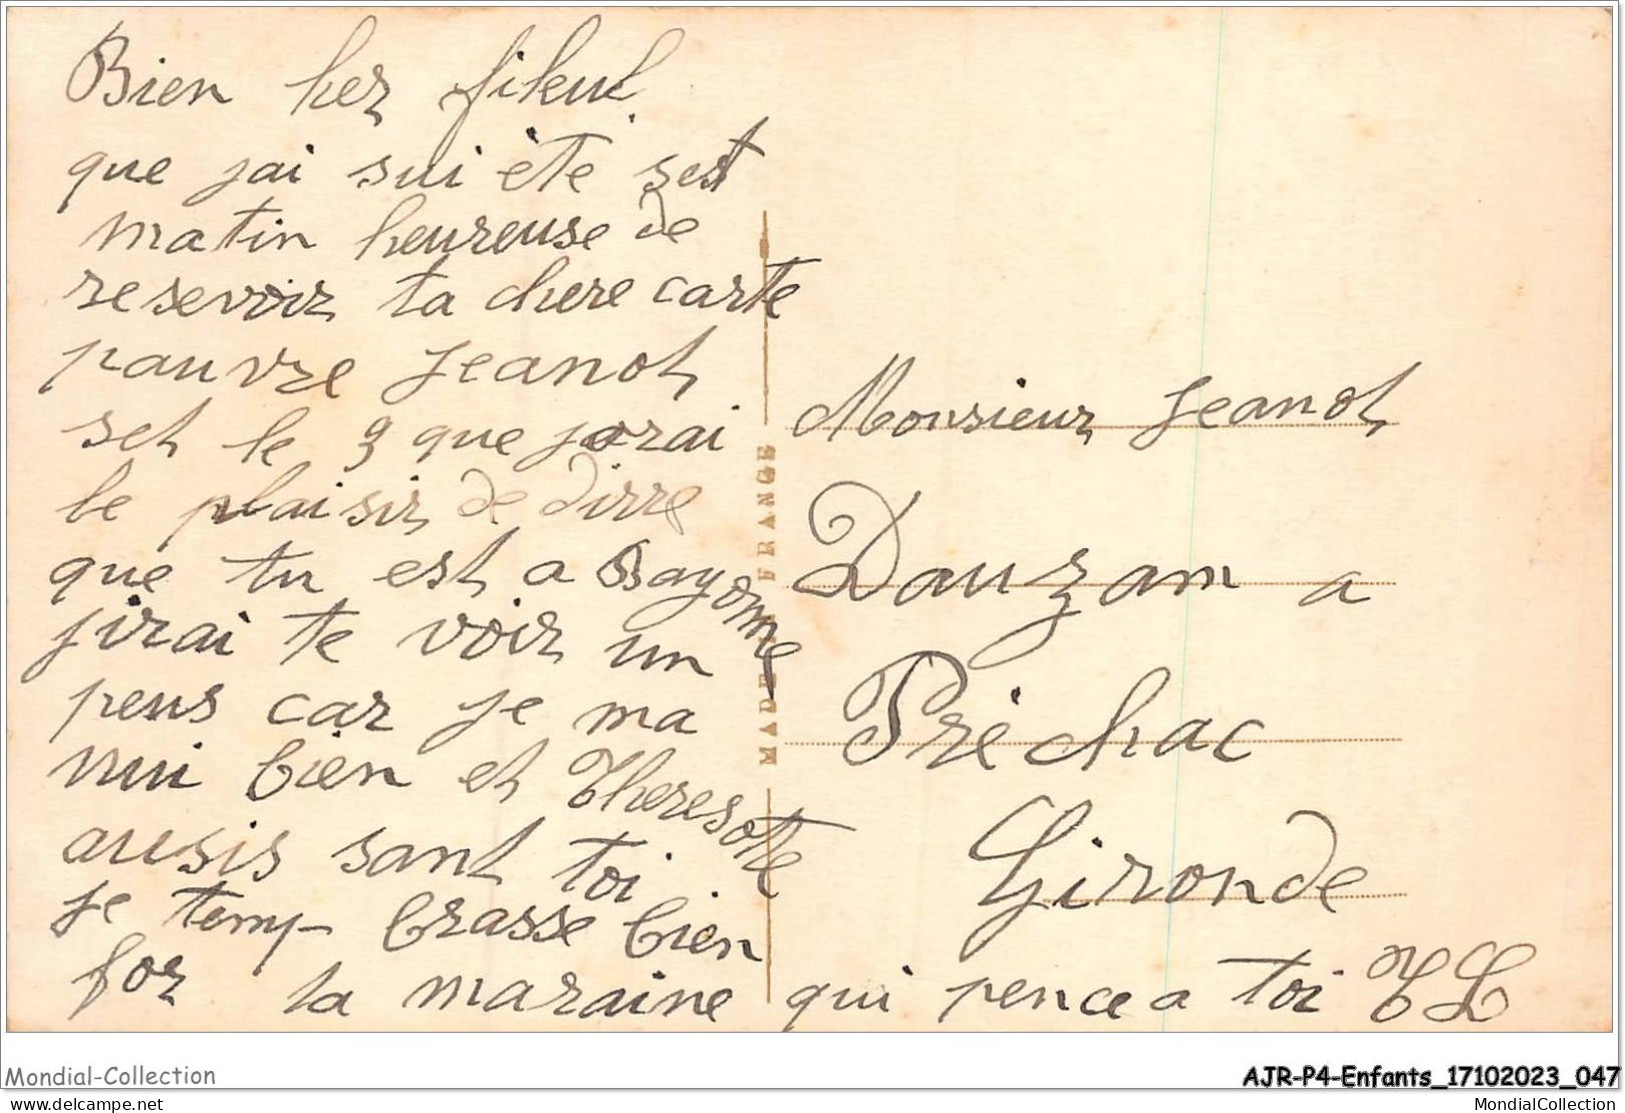 Bien her fileul
que jai sui été sest
matin heureuse de
resevoir ta chere carte
pauvre Jeanot
set le 9 que jorai
le plaisir de dirre
que tu est a Bayonne
jirai te voir un
peus car je ma
nui bien et Theresotte
ausis sant toi
je temp brasse bien
for la maraine qui pence a toi TL
MADE FRANCE
Monsieur Jeanot
Dauzam a
Préchac
Gironde
Mondial-Collection
AJR-P4-Enfants_17102023_047
delcampe.net
MondialCollection